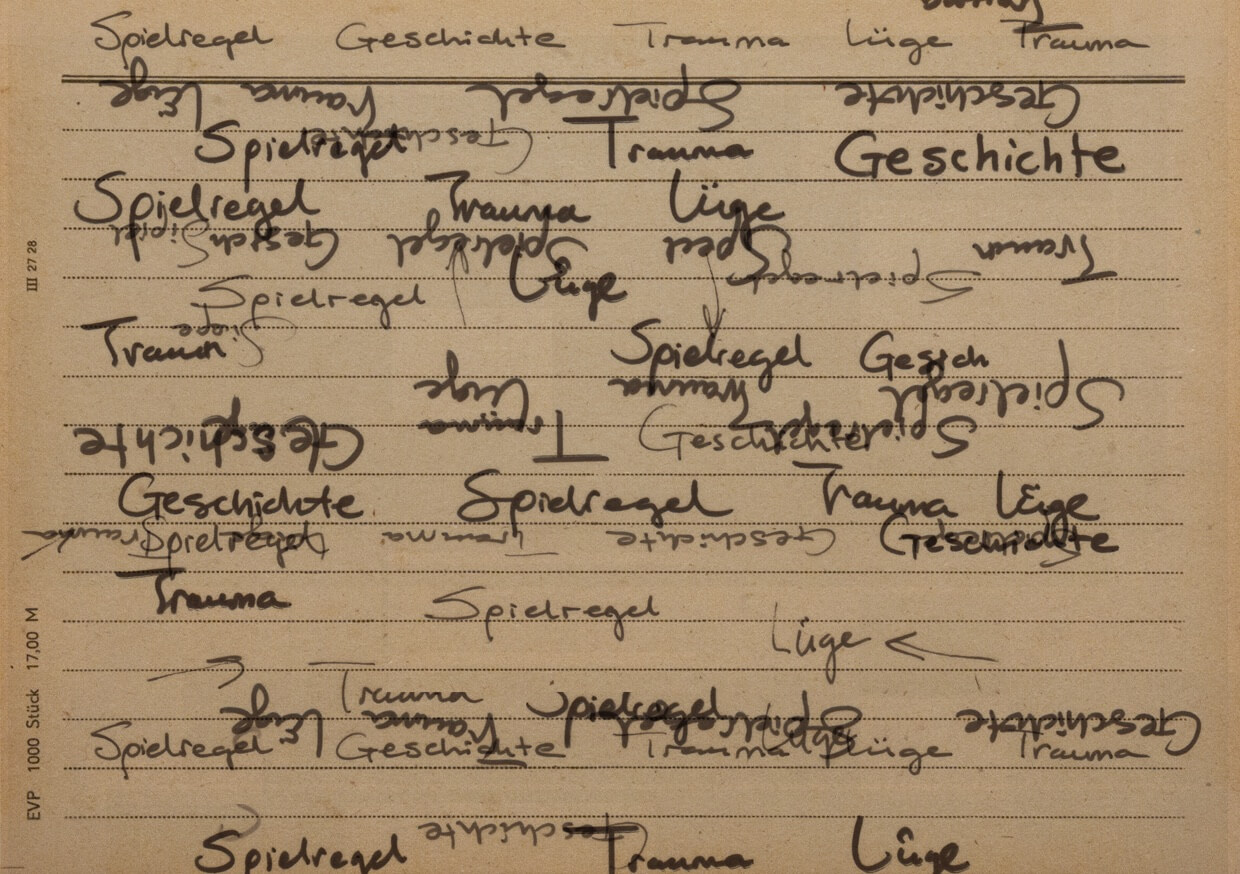 Spielregel Geschichte Trauma Lüge Trauma
Lüge Trauma Spielregel Geschichte
Geschichte
Spielregel Trauma Geschichte
Spielregel Trauma Lüge
Gesich Spielregel Specl Traum
Spielregel Lüge Spielregel
Traum Spielregel Gesich
Lüge Trauma Spielregel
Geschichte Trauma Geschichte Spielregel
Geschichte Spielregel Trauma Lüge
Trauma Spielregel Trauma Geschichte Geschichte
Trauma Spielregel
Lüge
Trauma Spielregel
Lüge Trauma Spielregel Geschichte
Spielregel Geschichte Trauma Lüge Trauma
Geschichte
Spielregel Trauma Lüge
III 27 28
EVP 1000 Stück 17,00 M